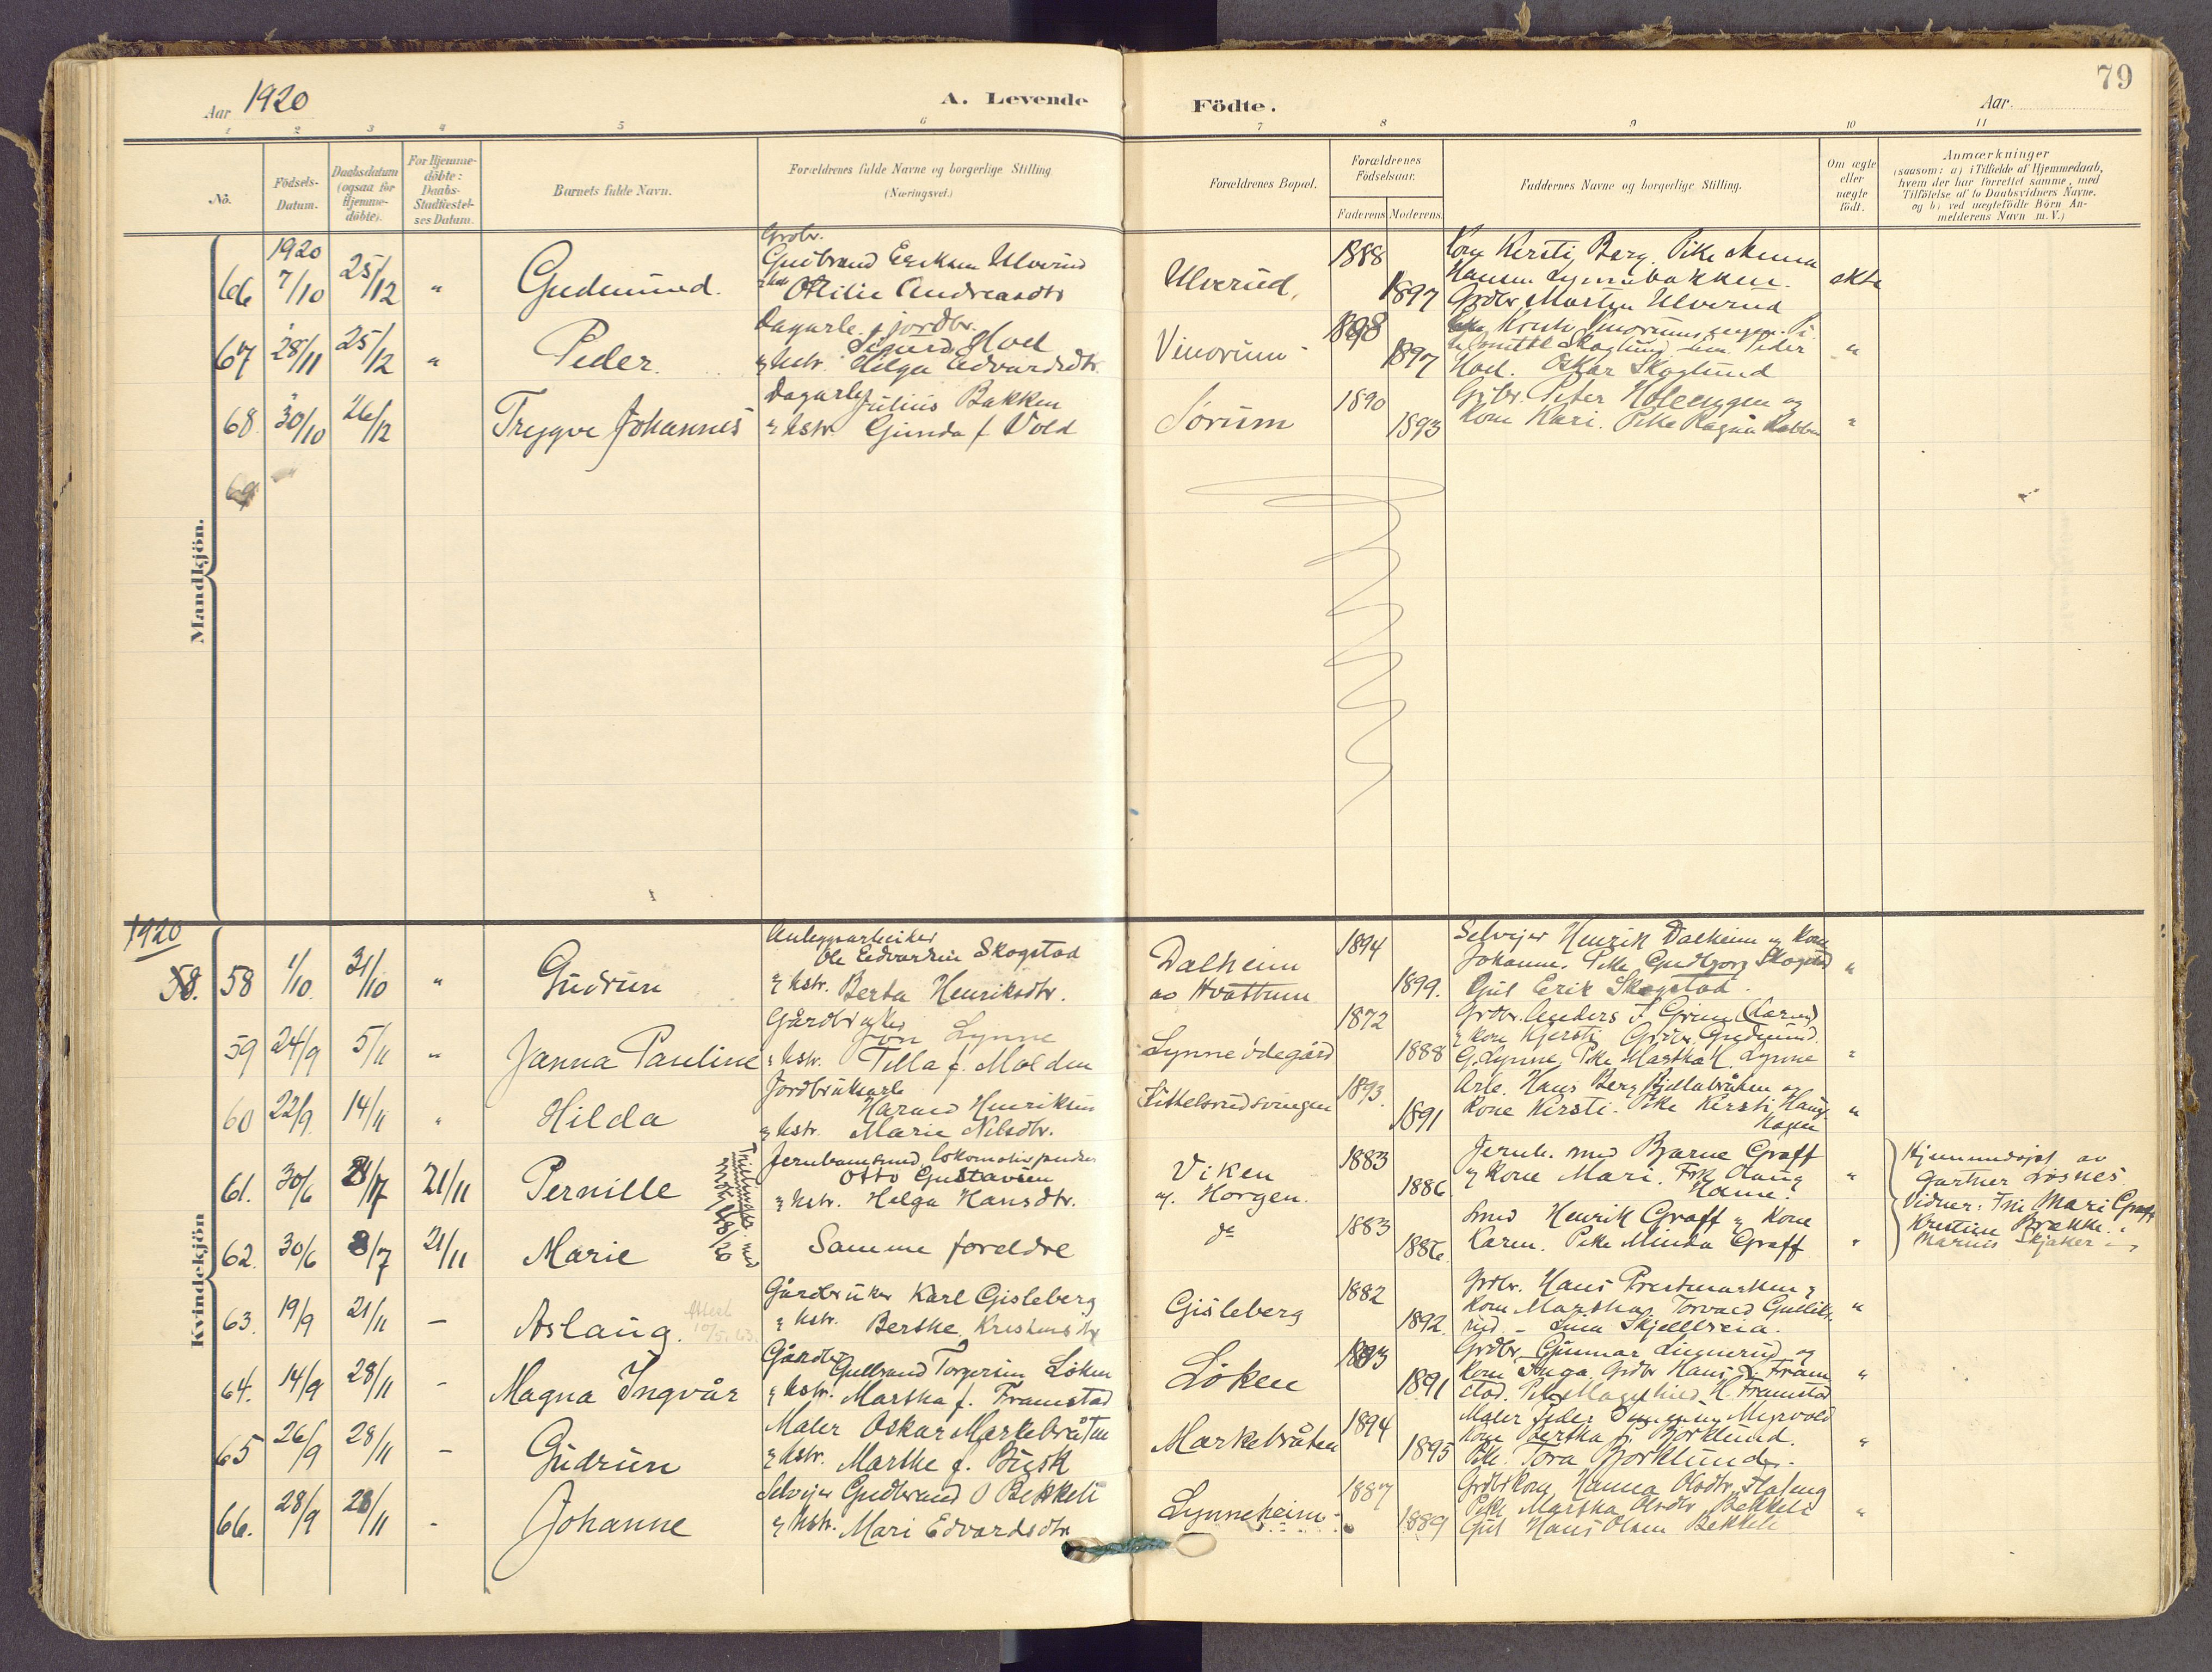 79
Aar 1920
A. Levende
Födte.
Aar
1 2 3 4 5 6 7 8 9 10 11
No.
Födsels-Datum.
Daabsdatum (ogsaa for Hjemme-döbte).
For Hjemme-döbte: Daabs-Stadfæstel-ses Datum.
Barnets fulde Navn.
Forældrenes fulde Navne og borgerlige Stilling (Næringsvei.)
Forældrenes Bopæl.
Forældrenes Födselsaar.
Faderens Moderens.
Faddernes Navne og borgerlige Stilling.
Om ægte eller uægte födt.
Anmærkninger
(saasom: a) i Tilfælde af Hjemmedaab,
hvem der har forrettet samme, med
Tilföielse af to Daabsvidners Navne.
og b) ved uægtefödte Börn An-
melderens Navn m.V.)
Mandkjön.
1920
66 7/10 25/12 " Gudmund.
Grdbr.
Gudbrand Eriksen Ulverud
Otilie Andreasdtr
Ulverud, 1888 1897
Kone Kersti Berg. Pike
Grdbr Martin Ulverud
ekte
67 28/11 25/12 " Peder
Dagarb. jordbr.
Sigurd Hoel
& hstr. Helga Edvardsdtr.
Vinorum 1898 1897
Skoglund Peder
Hoel. Oskar Skoglund "
68 30/10 26/12 Trygve Johannes
Dagarb. Julius Bakken
& hstr. Gunda f. Vold
Sørum 1890 1893
Peter Holeengen og
Kone Kari. Pike Ragna "
69
Kvindekjön
1920
58. 58 1/10 31/10 " Gudrun
Anleggsarbeider
Ole Edvardsen Skogstad
& hstr. Berta Henriksdtr.
Dalheim av Hvattum 1894 1899.
Selveier Henrik Dalheim og Kone
Johanne. Pike Gudbjørg Skogstad
Gut Erik Skogstad. "
59 24/9 5/11 " Janna Pauline
Gårdbruker
Jon Lynne
& hstr. Tilla f. Molden
Lynne ødegård 1872 1888
Grdbr. Anders J. Grim
& Kone Kjersti Grdbr. Gudmund
G. Lynne, Pike Martha H. Lynne "
60 22/9 14/11 " Hilda
Jordbruksarb
Harald Henriksen
& hstr. Marie Nilsdtr.
Kittelsrudsvingen 1893. 1891
Arb. Hans Berg
Kone Kersti. Pike Kersti Haug
"
61. 30/6 8/7 21/11 Pernille
Jernbanemand, lokomotivpudser
Otto Gustavsen
& hstr. Helga Hansdtr.
Viken av. Horgen. 1883 1886
Jernb. mand Bjarne Graff
& Kone Mari. Frk. Olaug "
Hjemmedøpt av
Gartner Løsnes.
Vidner: Fru Mari Graff
Kristine Brække
62. 30/6 8/7 21/11 Marie
Samme foreldre
do 1883 1886
Smed Henrik Graff & Kone
Karen. Pike Minda Graff "
63. 19/9 21/11 – Aslaug.
Attest 10/5. 63.
Gårdbruker Karl Gisleberg
& hstr. Berthe Kristensdtr
Gisleberg 1882 1892.
Grdbr. Hans &
Kone Martha, Torvald Gulliks-
rud – "
64. 14/9 28/11 – Magna Ingvår
Gårdbr Gulbrand Torgersen Løken
& hstr. Martha f. Framstad
Løken 1893 1891
Grdbr. Gunnar og
Kone Inga. Grdbr Hans Fram-
stad. Pike H. Framstad "
65 26/9 28/11 – Gudrun
Maler Oskar Markebråten
& hstr. Marthe f. Busk
Markebråten 1894 1895
Maler Peder Myrvold
Kone Bertha f. Bjørklund.
Pike. Tora Bjørklund. "
66. 28/9 28/11 – Johanne
Selveier Gudbrand O Bekkeli
& hstr. Mari Edvardsdtr
Lynneheim 1887 1889
Hanna Olsdtr.
Pike Martha Olsdtr. Bekkeli
Gut Hans Olsen Bekkeli "